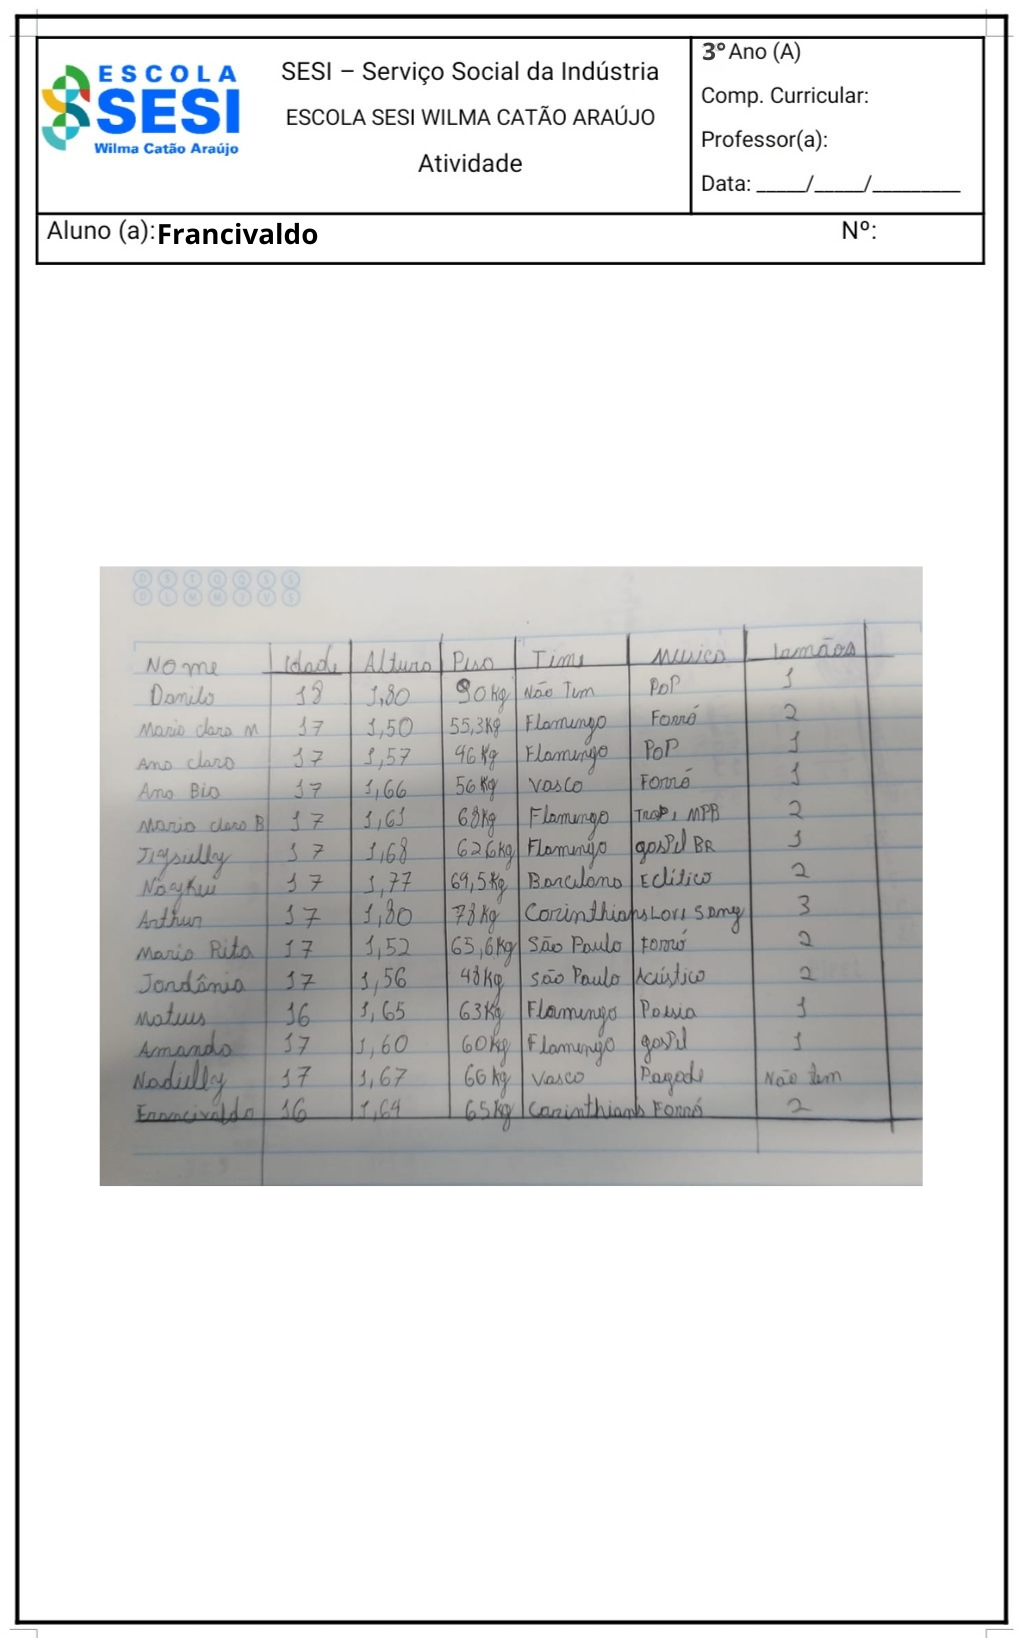 ESCOLA
SESI
Wilma Catão Araújo
SESI – Serviço Social da Indústria
ESCOLA SESI WILMA CATÃO ARAÚJO
Atividade
3º Ano (A)
Comp. Curricular:
Professor(a):
Data: _____/_____/_________
Aluno (a): Francivaldo Nº:
Nome Idade Altura Peso Time Música Irmãos
Danilo 18 1,80 90kg Não Tem PoP 1
Maria clara M 17 1,50 55,3kg Flamengo Forró 2
Ana clara 17 1,57 46kg Flamengo PoP 1
Ana Bia 17 1,66 56kg Vasco Forró 1
Maria clara B 17 1,61 68kg Flamengo Trap, MPB 2
17 1,68 62,6kg Flamengo gospel BR 1
17 1,77 69,5kg Barcelona Eclético 2
Arthur 17 1,80 78kg Corinthians Love Song 3
Maria Rita 17 1,52 65,6kg São Paulo Forró 2
Jordânia 17 1,56 48kg São Paulo Acústico 2
Mateus 16 1,65 63kg Flamengo Poesia 1
Amanda 17 1,60 60kg Flamengo gospel 1
Nadielly 17 1,67 66kg Vasco Pagode Não tem
Francivaldo 16 1,64 65kg Corinthians Forró 2